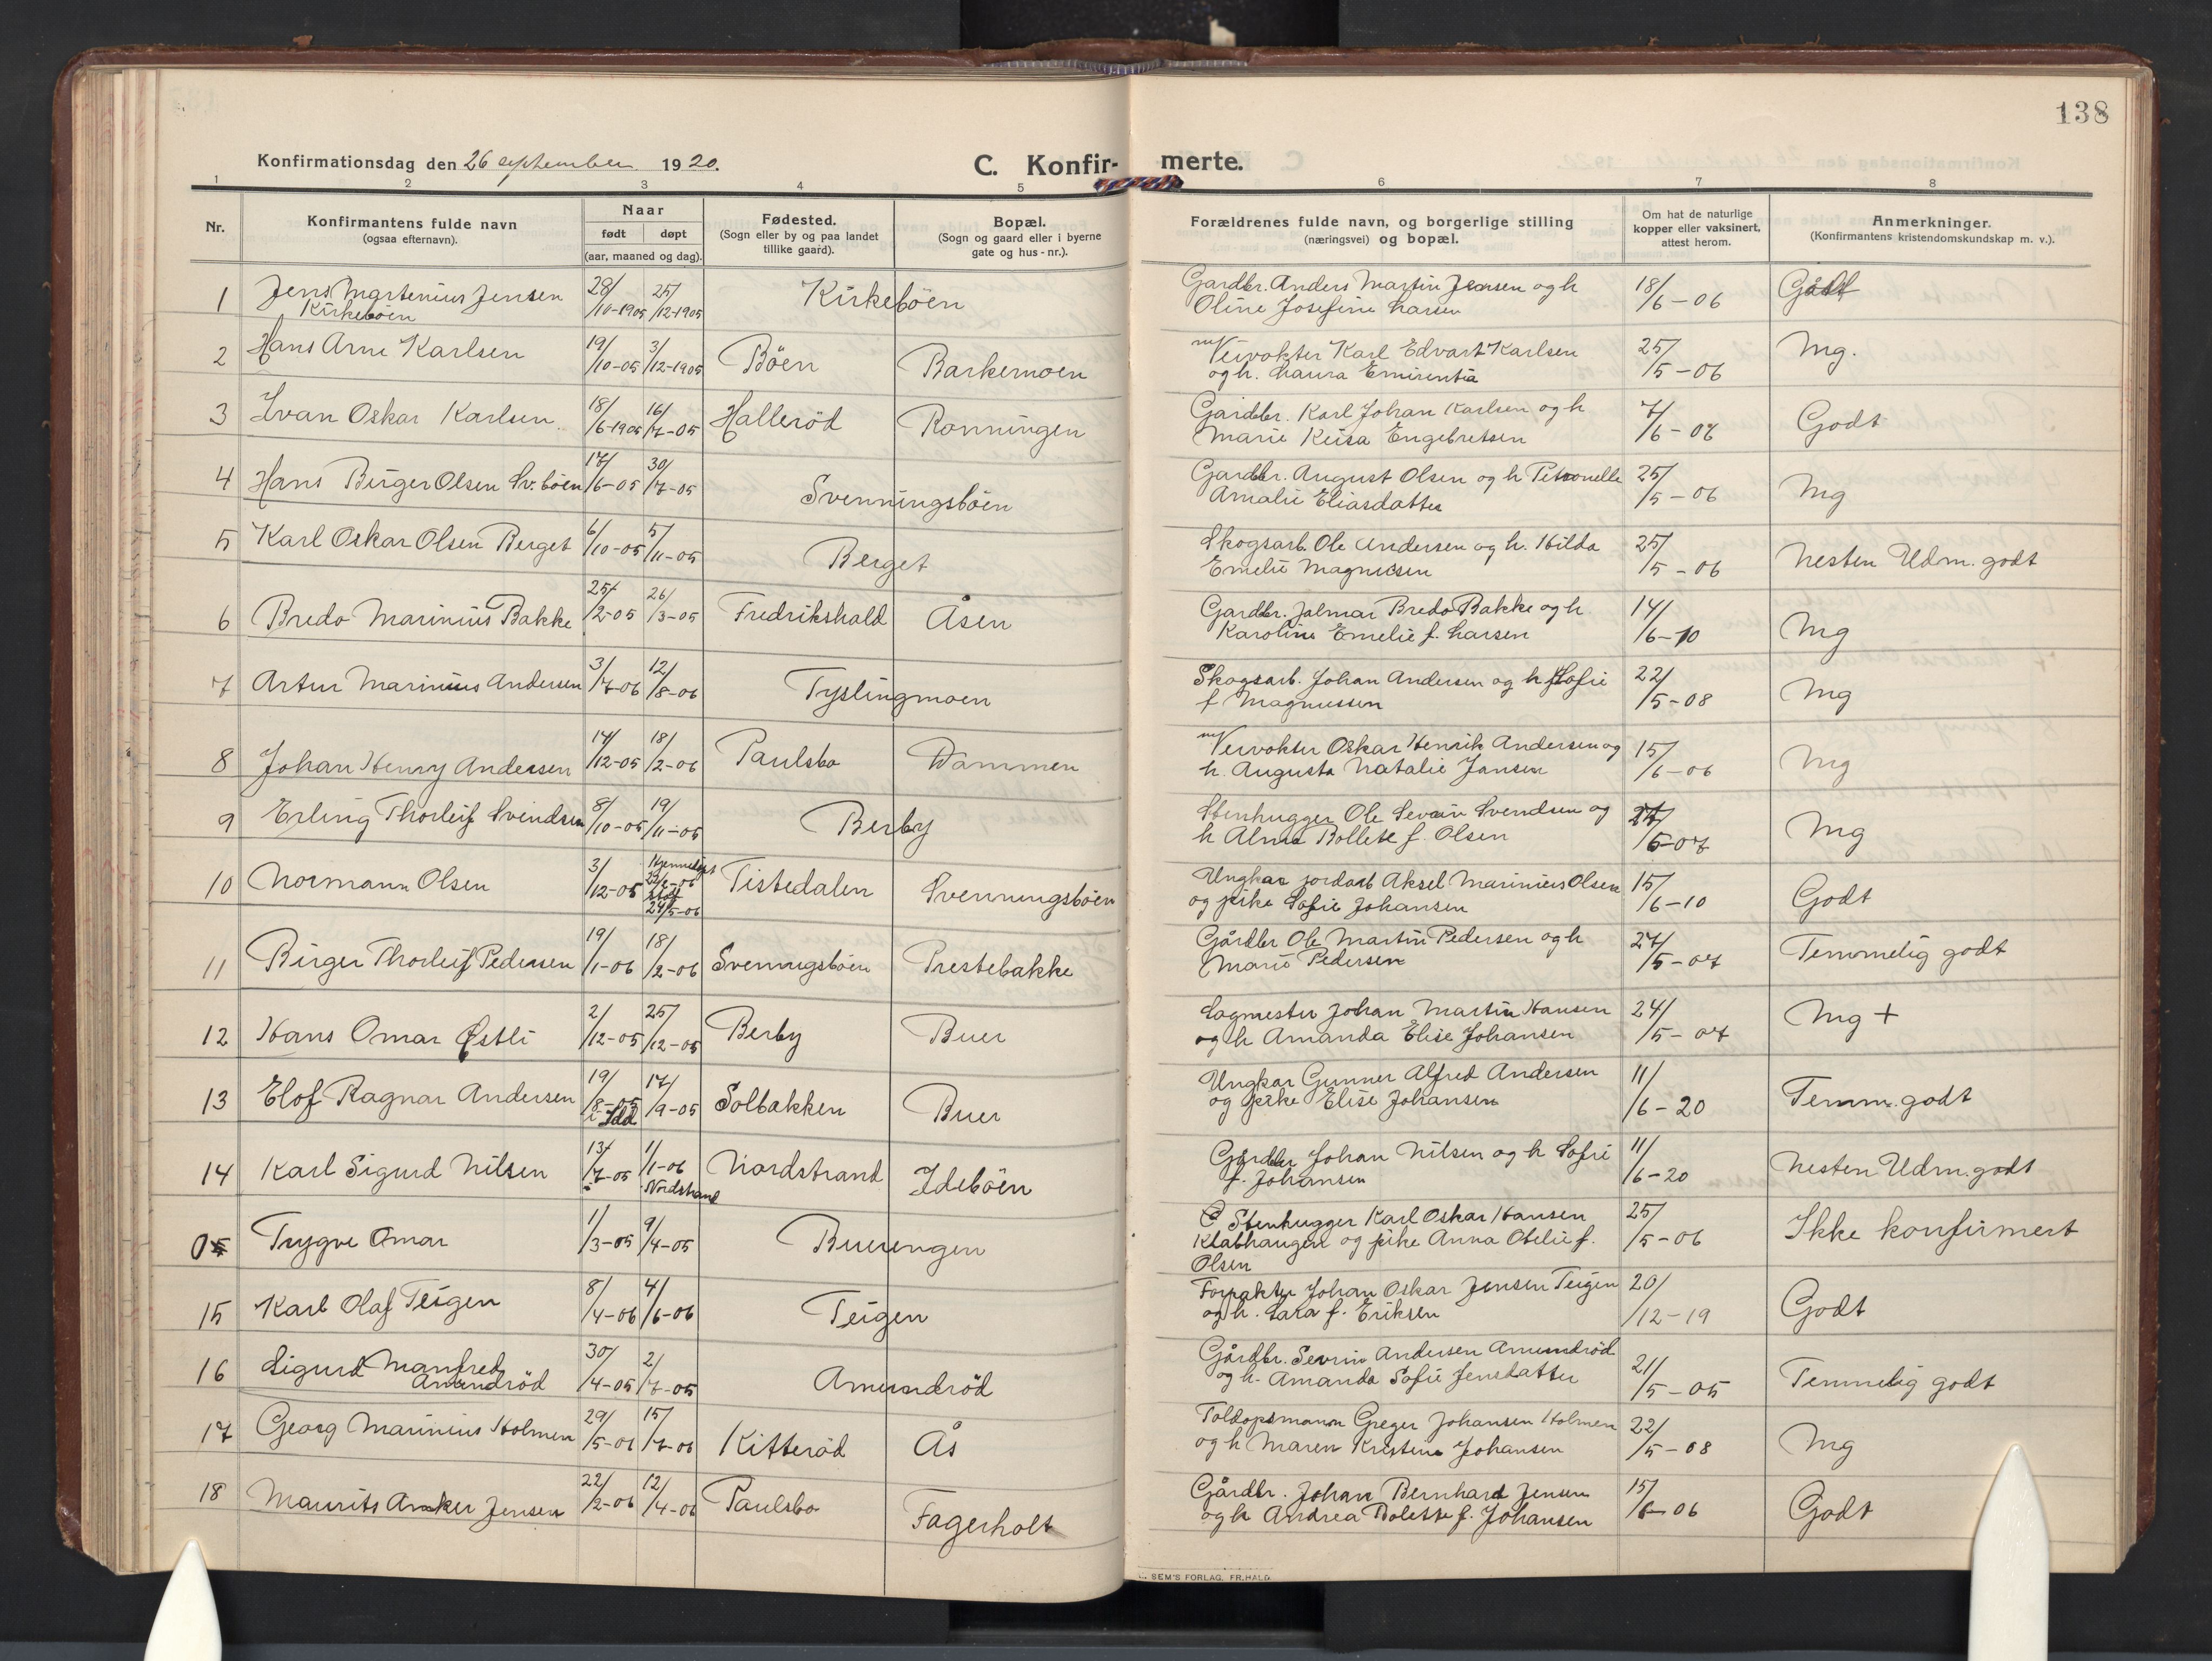 138
Konfirmationsdag den 26 september 1920.
C. Konfir-merte.
1 2 3 4 5 6 7 8
Nr.
Konfirmantens fulde navn
(ogsaa efternavn).
Naar
født døpt
(aar, maaned og dag).
Fødested.
(Sogn eller by og paa landet
tillike gaard).
Bopæl.
(Sogn og gaard eller i byerne
gate og hus-nr.).
Forældrenes fulde navn, og borgerlige stilling
(næringsvei) og bopæl.
Om hat de naturlige
kopper eller vaksinert,
attest herom.
Anmerkninger.
(Konfirmantens kristendomskundskap m. v.).
1 Jens Martenius Jensen 28/10-1905 25/12-1905 Kirkebøen Gardbr. Anders Martin Jensen og h 18/6-06 Godt
Kirkebøen Oline Josefine Larsen
2 Hans Arne Karlsen 19/10-05 3/12-1905 Bøen Barkemoen Veivokter Karl Edvart Karlsen 25/5-06 Mg.
og h. Laura Emirentia
3 Ivan Oskar Karlsen 18/6-1905 16/7-05 Hallerød Rønningen Gardbr. Karl Johan Karlsen og h 7/6-07 Godt
Marie Keisa Engebretsen
4 Hans Birger Olsen Sv. bøen 17/6-05 30/7-05 Svenningsbøen Gardbr. August Olsen og h Petronelle 25/5-06 Mg
Amalie Eliasdatter
5 Karl Oskar Olsen Berget 6/10-05 5/11-05 Berget Skogsarb. Ole Andersen og h. Hilda 25/5-06 Nesten Udm. godt
Emelie Magnussen
6 Bredo Marinius Bakke 25/2-05 26/3-05 Fredrikshald Åsen Gardbr. Jalmar Bredo Bakke og h 14/6-10 Mg
Karoline Emelie f. Larsen
7 Artur Marinius Andersen 3/7-06 12/8-06 Tyslingmoen Skogsarb. Johan Andersen og h Sofie 22/5-08 Mg
f Magnussen
8 Johan Henry Andersen 14/12-05 18/2-06 Paulsbo Dammen Veivokter Oskar Henrik Andersen og 15/6-06 Mg
h. Augusta Natalie Jansen
9 Erling Thorleif Svendsen 8/10-05 19/11-05 Berby Stenhugger Ole Severin Svendsen og Mg
h Alma Bollete f. Olsen
10 Normann Olsen 3/12-05 Hjemmedøpt 24/5-06 Tistedalen Svenningsbøen Ungkar jordarb Aksel Marinius Olsen 15/6-10 Godt
og pike Sofie Johansen
11 Birger Thorleif Pedersen 19/1-06 18/2-06 Svenningsbøen Prestebakke Gårdbr Ole Martin Pedersen og h 27/5-07 Temmelig godt
Marie Pedersen
12 Hans Omar Østli 2/12-05 25/12-05 Berby Buer Sagmester Johan Martin Hansen 24/5-07 Mg +
og h Amanda Elise Johansen
13 Elof Ragnar Andersen 19/8-05 i Idd 17/9-05 Solbakken Buer Ungkar Gunner Alfred Andersen 11/6-20 Temm. godt
og pike Elise Johansen
14 Karl Sigurd Nilsen 13/7-05 1/1-06 Nordstrand Nordstrand Idebøen Gårdbr Johan Nilsen og h Sofie 11/6-20 Nesten Udm. godt
f. Johansen
0 Trygve Omar 1/3-05 9/4-05 Buerengen Stenhugger Karl Oskar Hansen 25/5-06 Ikke konfirmert
Klabhaugen og pike Anna Otelie f.
Olsen
15 Karl Olaf Teigen 8/4-06 4/6-06 Teigen Forpakter Johan Oskar Jensen Teigen 20/12-19 Godt
og h. Lara f. Eriksen
16 Sigurd Manfred 30/4-05 2/7-05 Amundrød Gårdbr. Sevrin Andersen Amundrød 21/5-05 Temmelig godt
Amundrød og h. Amanda Sofie Jensdatter
17 Georg Marinius Holmen 29/5-06 15/7-06 Kitterød Ås Toldopsmann Greger Johansen Holmen 22/5-08 Mg
og h Maren Kristine Johansen
18 Maurits Anker Jensen 22/2-06 12/4-06 Paulsbo Fagerholt Gårdbr. Johan Bernhard Jensen 15/6-06 Godt
og h Andrea Bolette f. Johansen
SEM'S FORLAG, FR.HALD.